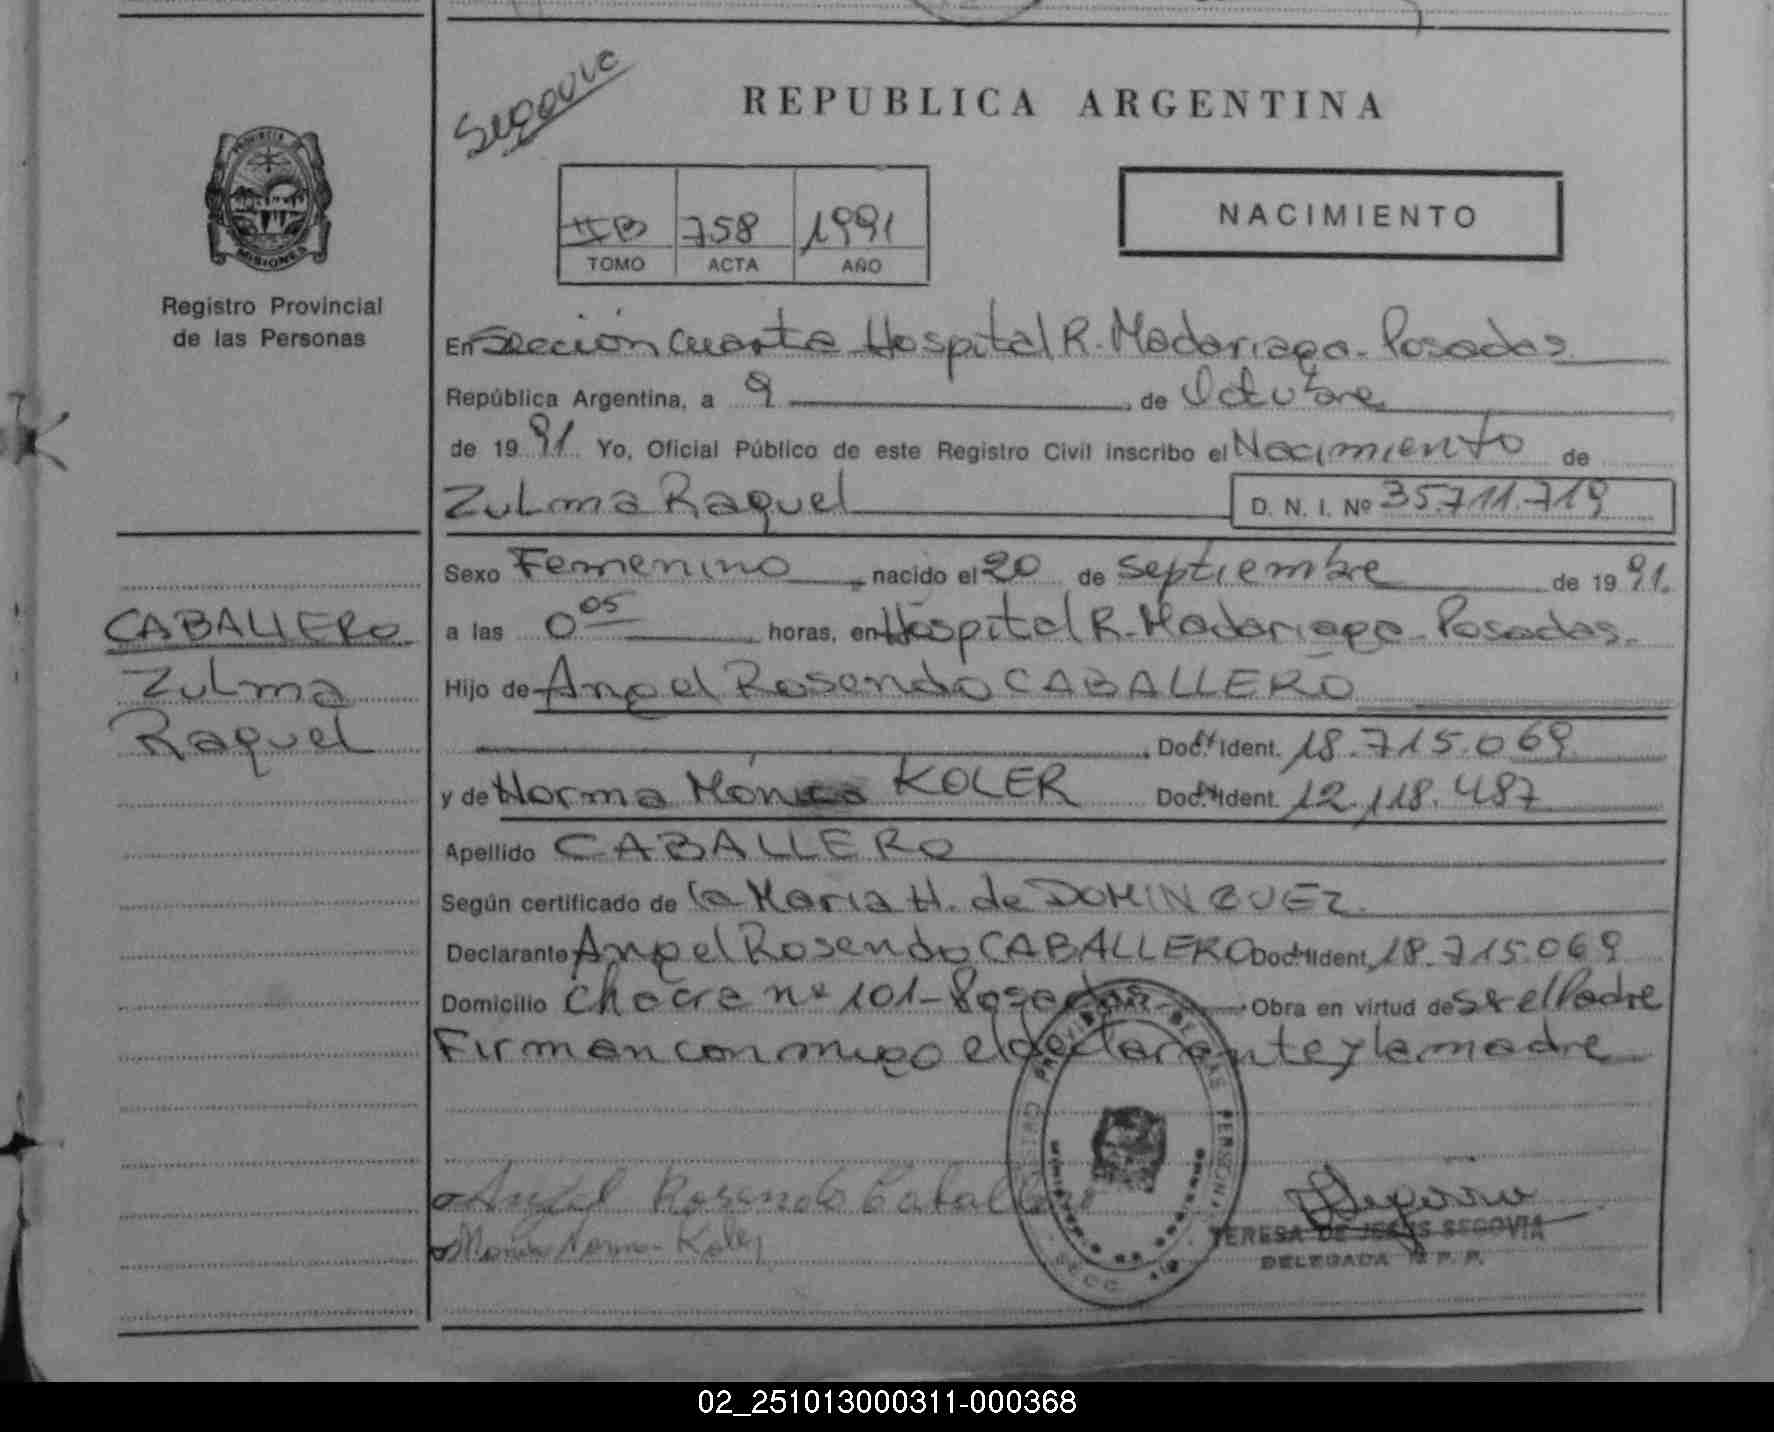 Segovia
REPUBLICA ARGENTINA
PROVINCIA
MISIONES
Registro Provincial
de las Personas
IIB 758 1991
TOMO ACTA AÑO
NACIMIENTO
En Sección Cuarta Hospital R. Madariaga - Posadas
República Argentina, a 9 , de Octubre
de 1991 Yo, Oficial Público de este Registro Civil inscribo el Nacimiento de
Zulma Raquel D. N. I. Nº 35.711.719
Sexo Femenino , nacido el 20 de septiembre de 1991.
a las 0 05 horas, en Hospital R. Madariaga - Posadas.
Hijo de Angel Rosendo CABALLERO
Doc. Ident. 18.715.069
y de Norma Mónica KOLER Doc. Ident. 12.118.487
Apellido CABALLERO
Según certificado de la Maria H. de DOMINGUEZ
Declarante Angel Rosendo CABALLERO Doc. Ident. 18.715.069
Domicilio Chacra nº 101 - Posadas . Obra en virtud de ser el Padre
Firman conmigo el declarante y la madre
CABALLERO
Zulma
Raquel
Angel Rosendo Caballero
Monica Norma Koler
REGISTRO PROVINCIAL DE LAS PERSONAS
SECC.
TERESA DE JESUS SEGOVIA
DELEGADA R. P. P.
02_251013000311-000368